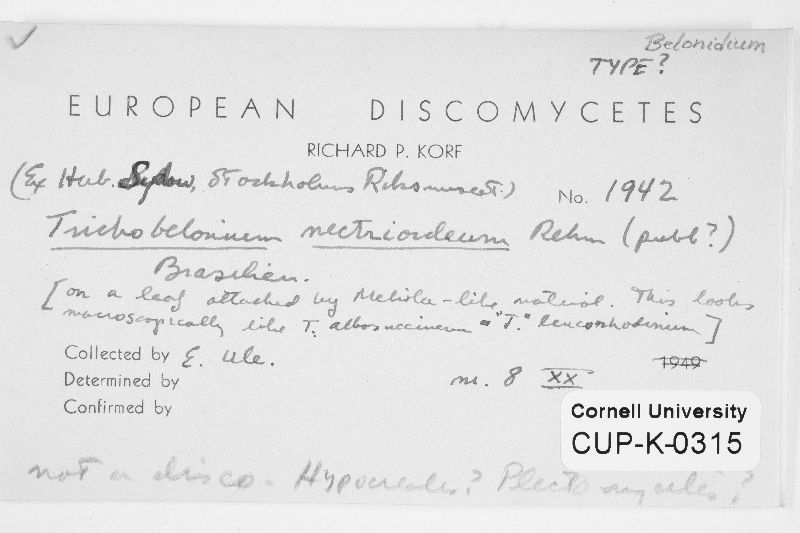 Belonidium
TYPE?
EUROPEAN DISCOMYCETES
RICHARD P. KORF
(Ex Herb. Sydow, Stockholms Riksmuseet.)
No. 1942
Trichobelonium nectrioideum Rehm (publ?)
Brasilien.
[on a leaf attached by Meliola-like material. This looks
macroscopically like T. albosuccineum = "T." leucorhodinum]
Collected by E. Ule.
1949
Determined by
nr. 8 XX
Confirmed by
Cornell University
CUP-K-0315
not a disco. Hypocreales? Plectomycetes?